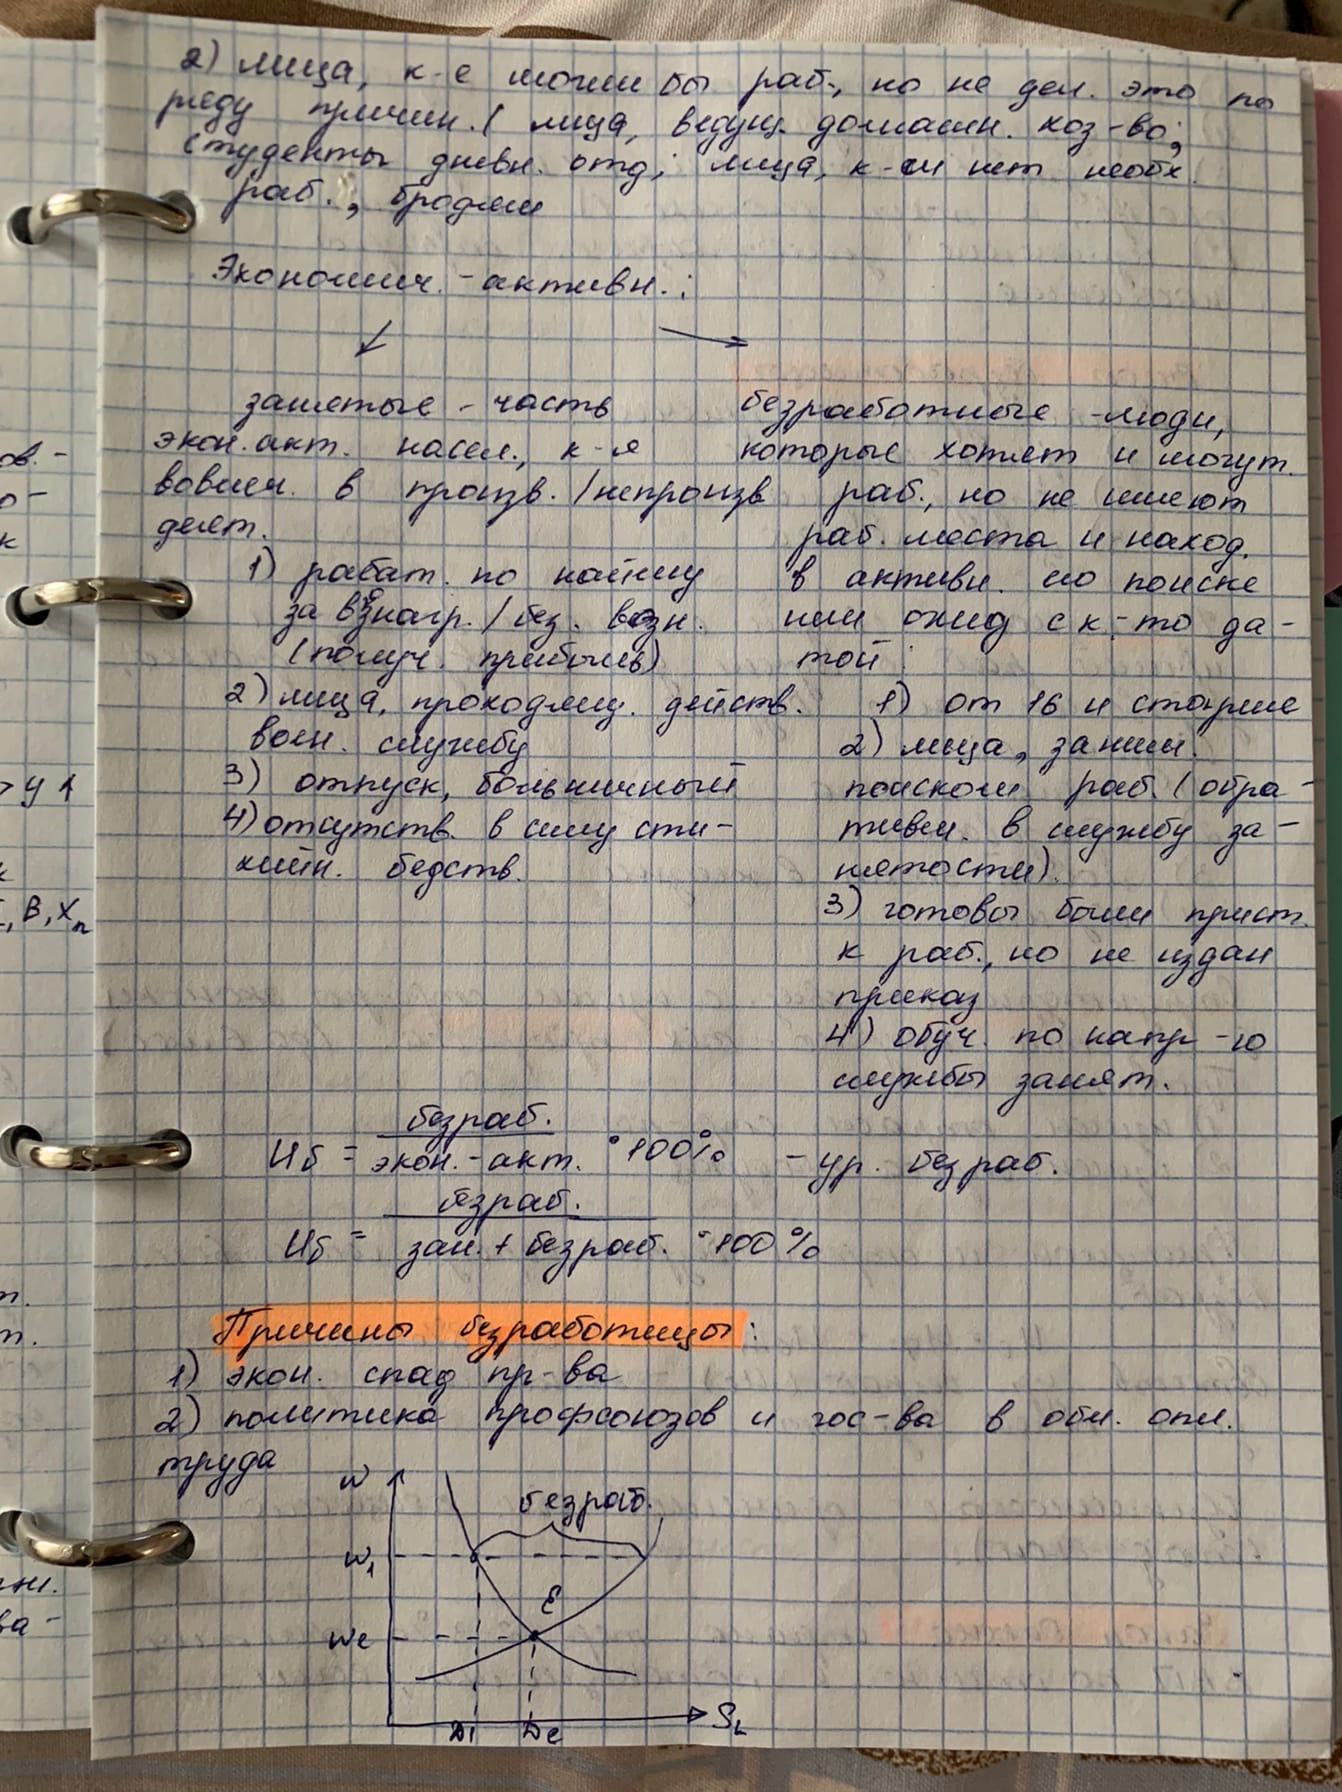 2) лица, к-е могли бы раб., но не дел. это по
ряду причин. ( лица, ведущ. домашн. хоз-во;
студенты дневн. отд; лица, к-м нет необх.
раб., бродяги
Экономич. - активн. :
занятые - часть
экон. акт. насел., к-я
вовлеч. в произв. / непроизв
деят.
1) работ. по найму
за вознагр. / без. возн.
(получ. прибыль)
2) лица, проходящ. действ.
воен. службу
3) отпуск, больничный
4) отсутств. в силу сти-
хийн. бедств.
безработные - люди,
которые хотят и могут
раб., но не имеют
раб. места и наход.
в активн. его поиске
или ожид с к-то да-
той
1) от 16 и старше
2) лица, заним.
поиском раб. (обра-
тивш. в службу за-
нятости).
3) готовы были прист.
к раб., но не издан
приказ
4) обуч. по напр-ю
службы занят.
Uб = безраб. / экон. - акт. · 100% - ур. безраб.
Uб = безраб. / зан. + безраб. · 100%
Причины безработицы:
1) экон. спад пр-ва
2) политика профсоюзов и гос-ва в обл. опл.
труда
w
безраб.
w1
E
we
D1 De SL
ов. -
о-
к
> y 1
, B, Xn
т.
т.
ва-